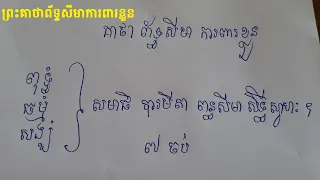 ព្រះគាថាព័ទ្ធសីមាការពារខ្លួន
គាថា ព័ទ្ធសីមា ការពារខ្លួន
ពុទ្ធំ
ធម្មំ
សង្ឃំ
សមាធិ បារមីនា ពន្ធសីមា សិទ្ធិស្វាហៈ ។
៧ ចប់